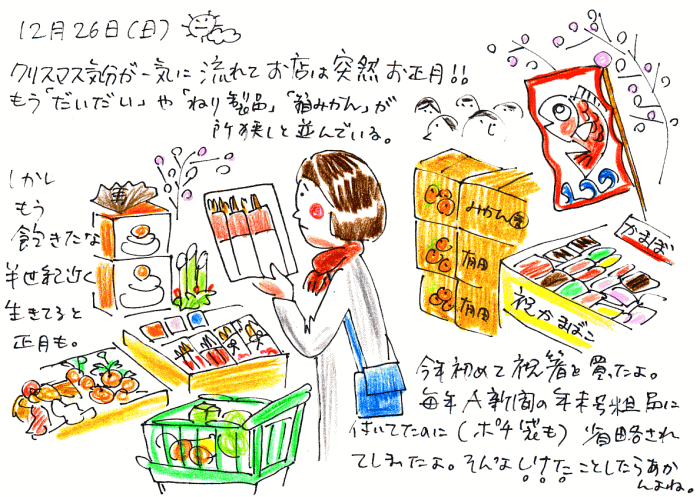 12月26日(日)
クリスマス気分が一気に流れてお店は突然お正月!!
もう「だいだい」や「ねり製品」「箱みかん」が
所狭しと並んでいる。
しかし
もう
飽きたな
半世紀近く
生きてると
正月も。
みかん
有田
有田
かまぼ
祝かまぼこ
今年初めて祝箸を買ったよ。
毎年A新聞の年末号粗品に
付いてたのに(ポチ袋も)省略され
てしまったよ。そんなしけたことしたらあか
んよね。